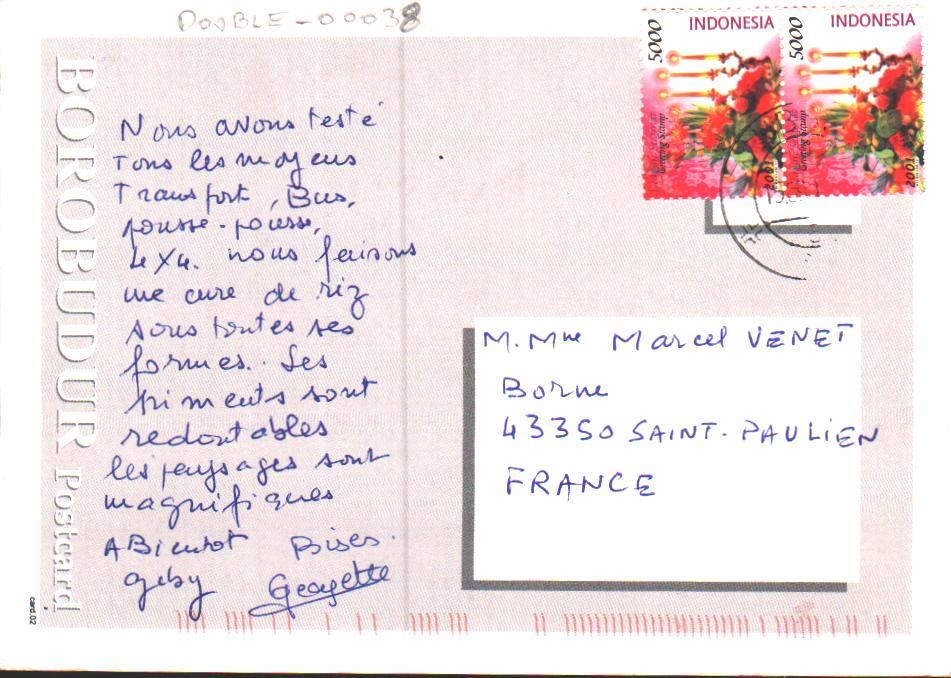 DOUBLE-00038
INDONESIA
5000
Greeting Stamp
2001
INDONESIA
5000
Greeting Stamp
2001
BOROBUDUR Postcard
Nous avons testé
Tous les moyens
Transport, Bus,
pousse-pousse,
4x4. nous faisons
une cure de riz
sous toutes ses
formes. Les
piments sont
redoutables
les paysages sont
magnifiques
A Bientot Bises.
Geby Georgette
M. Mme Marcel VENET
Borne
43350 SAINT-PAULIEN
FRANCE
card.02